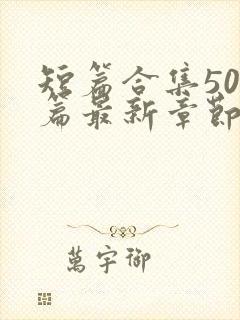 短篇合集50
篇最新章節
萬宇御